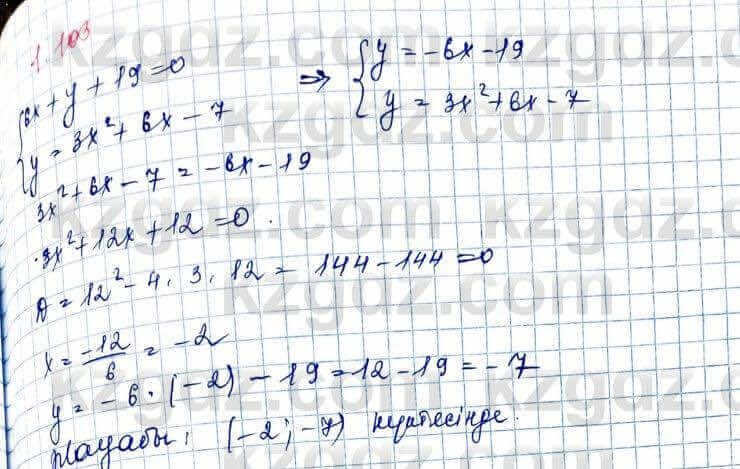 1.103
{6x + y + 19 = 0 ⇒ {y = -6x - 19
{y = 3x² + 6x - 7 {y = 3x² + 6x - 7
3x² + 6x - 7 = -6x - 19
3x² + 12x + 12 = 0.
D = 12² - 4 · 3 · 12 = 144 - 144 = 0
x = -12/6 = -2
y = -6 · (-2) - 19 = 12 - 19 = -7
Жауабы: (-2; -7) нүктесінде.
kzgdz.com